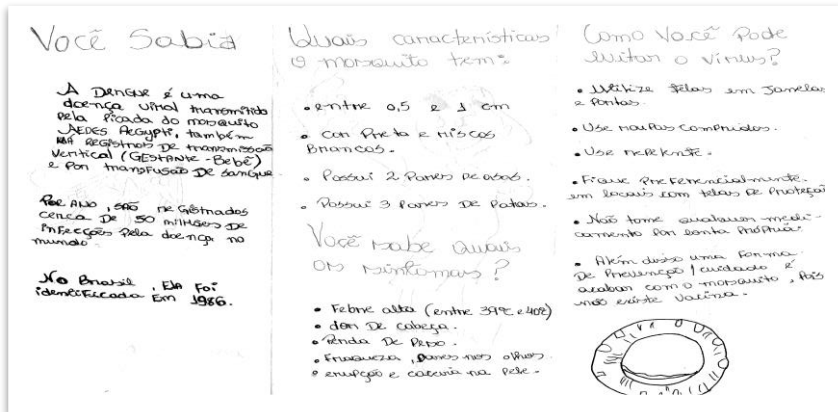 Você Sabia
A Dengue é uma
doença viral transmitido
pela Picada do mosquito
AEDES Aegypti, também
HÁ REGISTROS DE transmissão
vertical (GESTANTE - Bebê)
e por transfusão De sangue
Por ANO, SÃO registrados
cerca De 50 milhões De
infecções Pela doença no
mundo
No Brasil, Ela Foi
identificada Em 1986.
Quais características
o mosquito tem:
• entre 0,5 e 1 cm
• cor Preta e riscos
Brancos.
• Possui 2 Pares De asas.
• Possui 3 Pares De Patas.
Você sabe Quais
os sintomas?
• Febre alta (entre 39°C e 40°C)
• dor De cabeça.
• Perda De Peso.
• Fraqueza, dores nos olhos.
• erupção e coceira na Pele.
Como Você Pode
evitar o vírus?
• Utilize telas em Janelas
e Portas.
• Use roupas Compridas.
• Use repelente.
• Fique Preferencialmente
em locais com telas De Proteção
• Não tome qualquer medi-
camento Por conta Própria.
• Além disso uma Forma
De Prevenção / cuidado é
acabar com o mosquito, Pois
não existe Vacina.